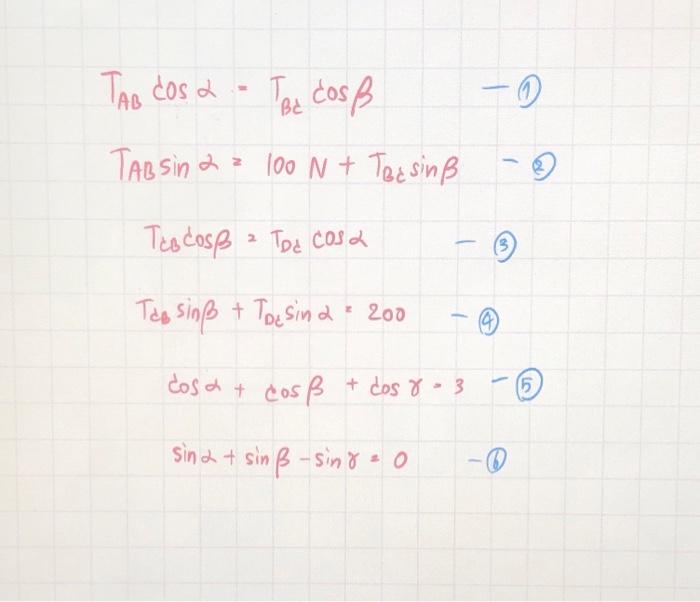 T_AB cos α = T_BC cos β — ①
T_AB sin α = 100 N + T_BC sin β — ②
T_CB cos β = T_DC cos α — ③
T_CB sin β + T_DC sin α = 200 — ④
cos α + cos β + cos γ = 3 — ⑤
sin α + sin β − sin γ = 0 — ⑥